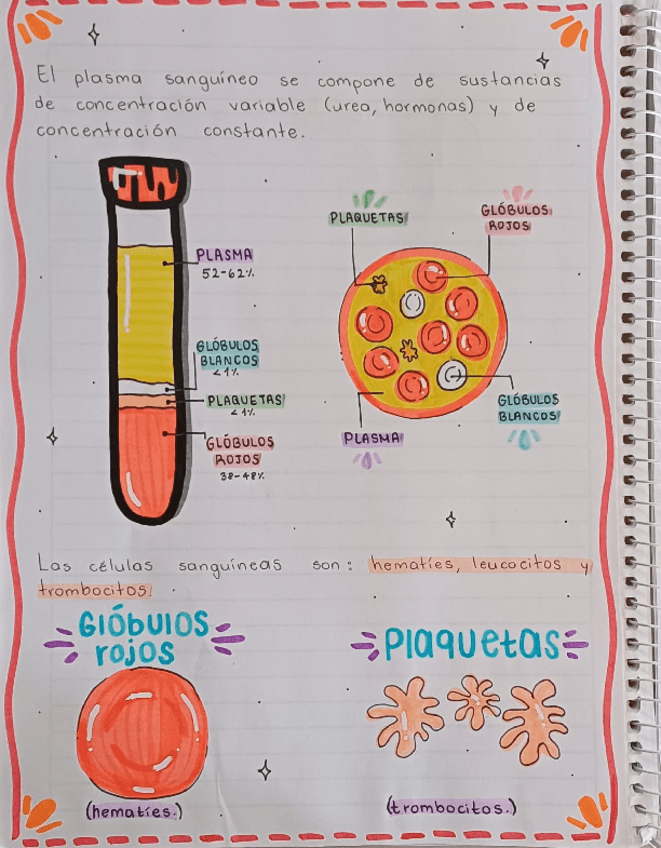 El plasma sanguíneo se compone de sustancias
de concentración variable (urea, hormonas) y de
concentración constante.
PLASMA
52-62%
GLÓBULOS
BLANCOS
<1%
PLAQUETAS
<1%
GLÓBULOS
ROJOS
38-48%
PLAQUETAS
GLÓBULOS
ROJOS
GLÓBULOS
BLANCOS
PLASMA
Las células sanguíneas son: hematíes, leucocitos y
trombocitos.
Glóbulos
rojos
(hematíes.)
Plaquetas
(trombocitos.)